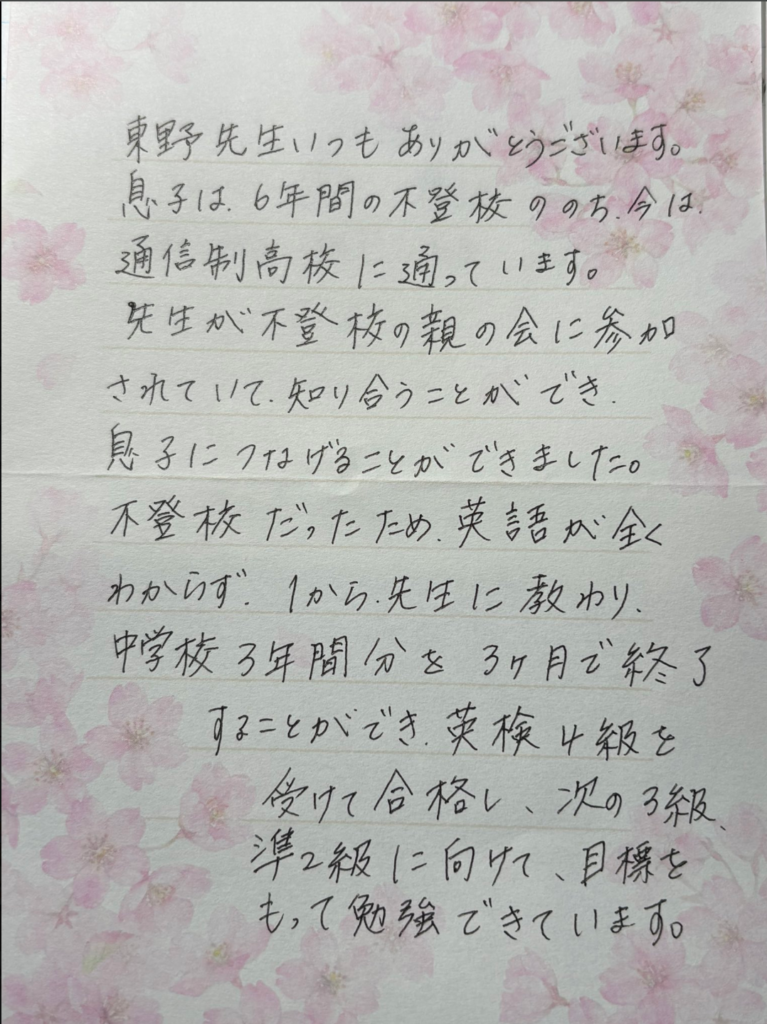 東野先生いつもありがとうございます。
息子は、6年間の不登校ののち、今は、
通信制高校に通っています。
先生が不登校の親の会に参加
されていて、知り合うことができ、
息子につなげることができました。
不登校だったため、英語が全く
わからず、1から、先生に教わり、
中学校3年間分を3ヶ月で終了
することができ、英検4級を
受けて合格し、次の3級、
準2級に向けて、目標を
もって勉強できています。